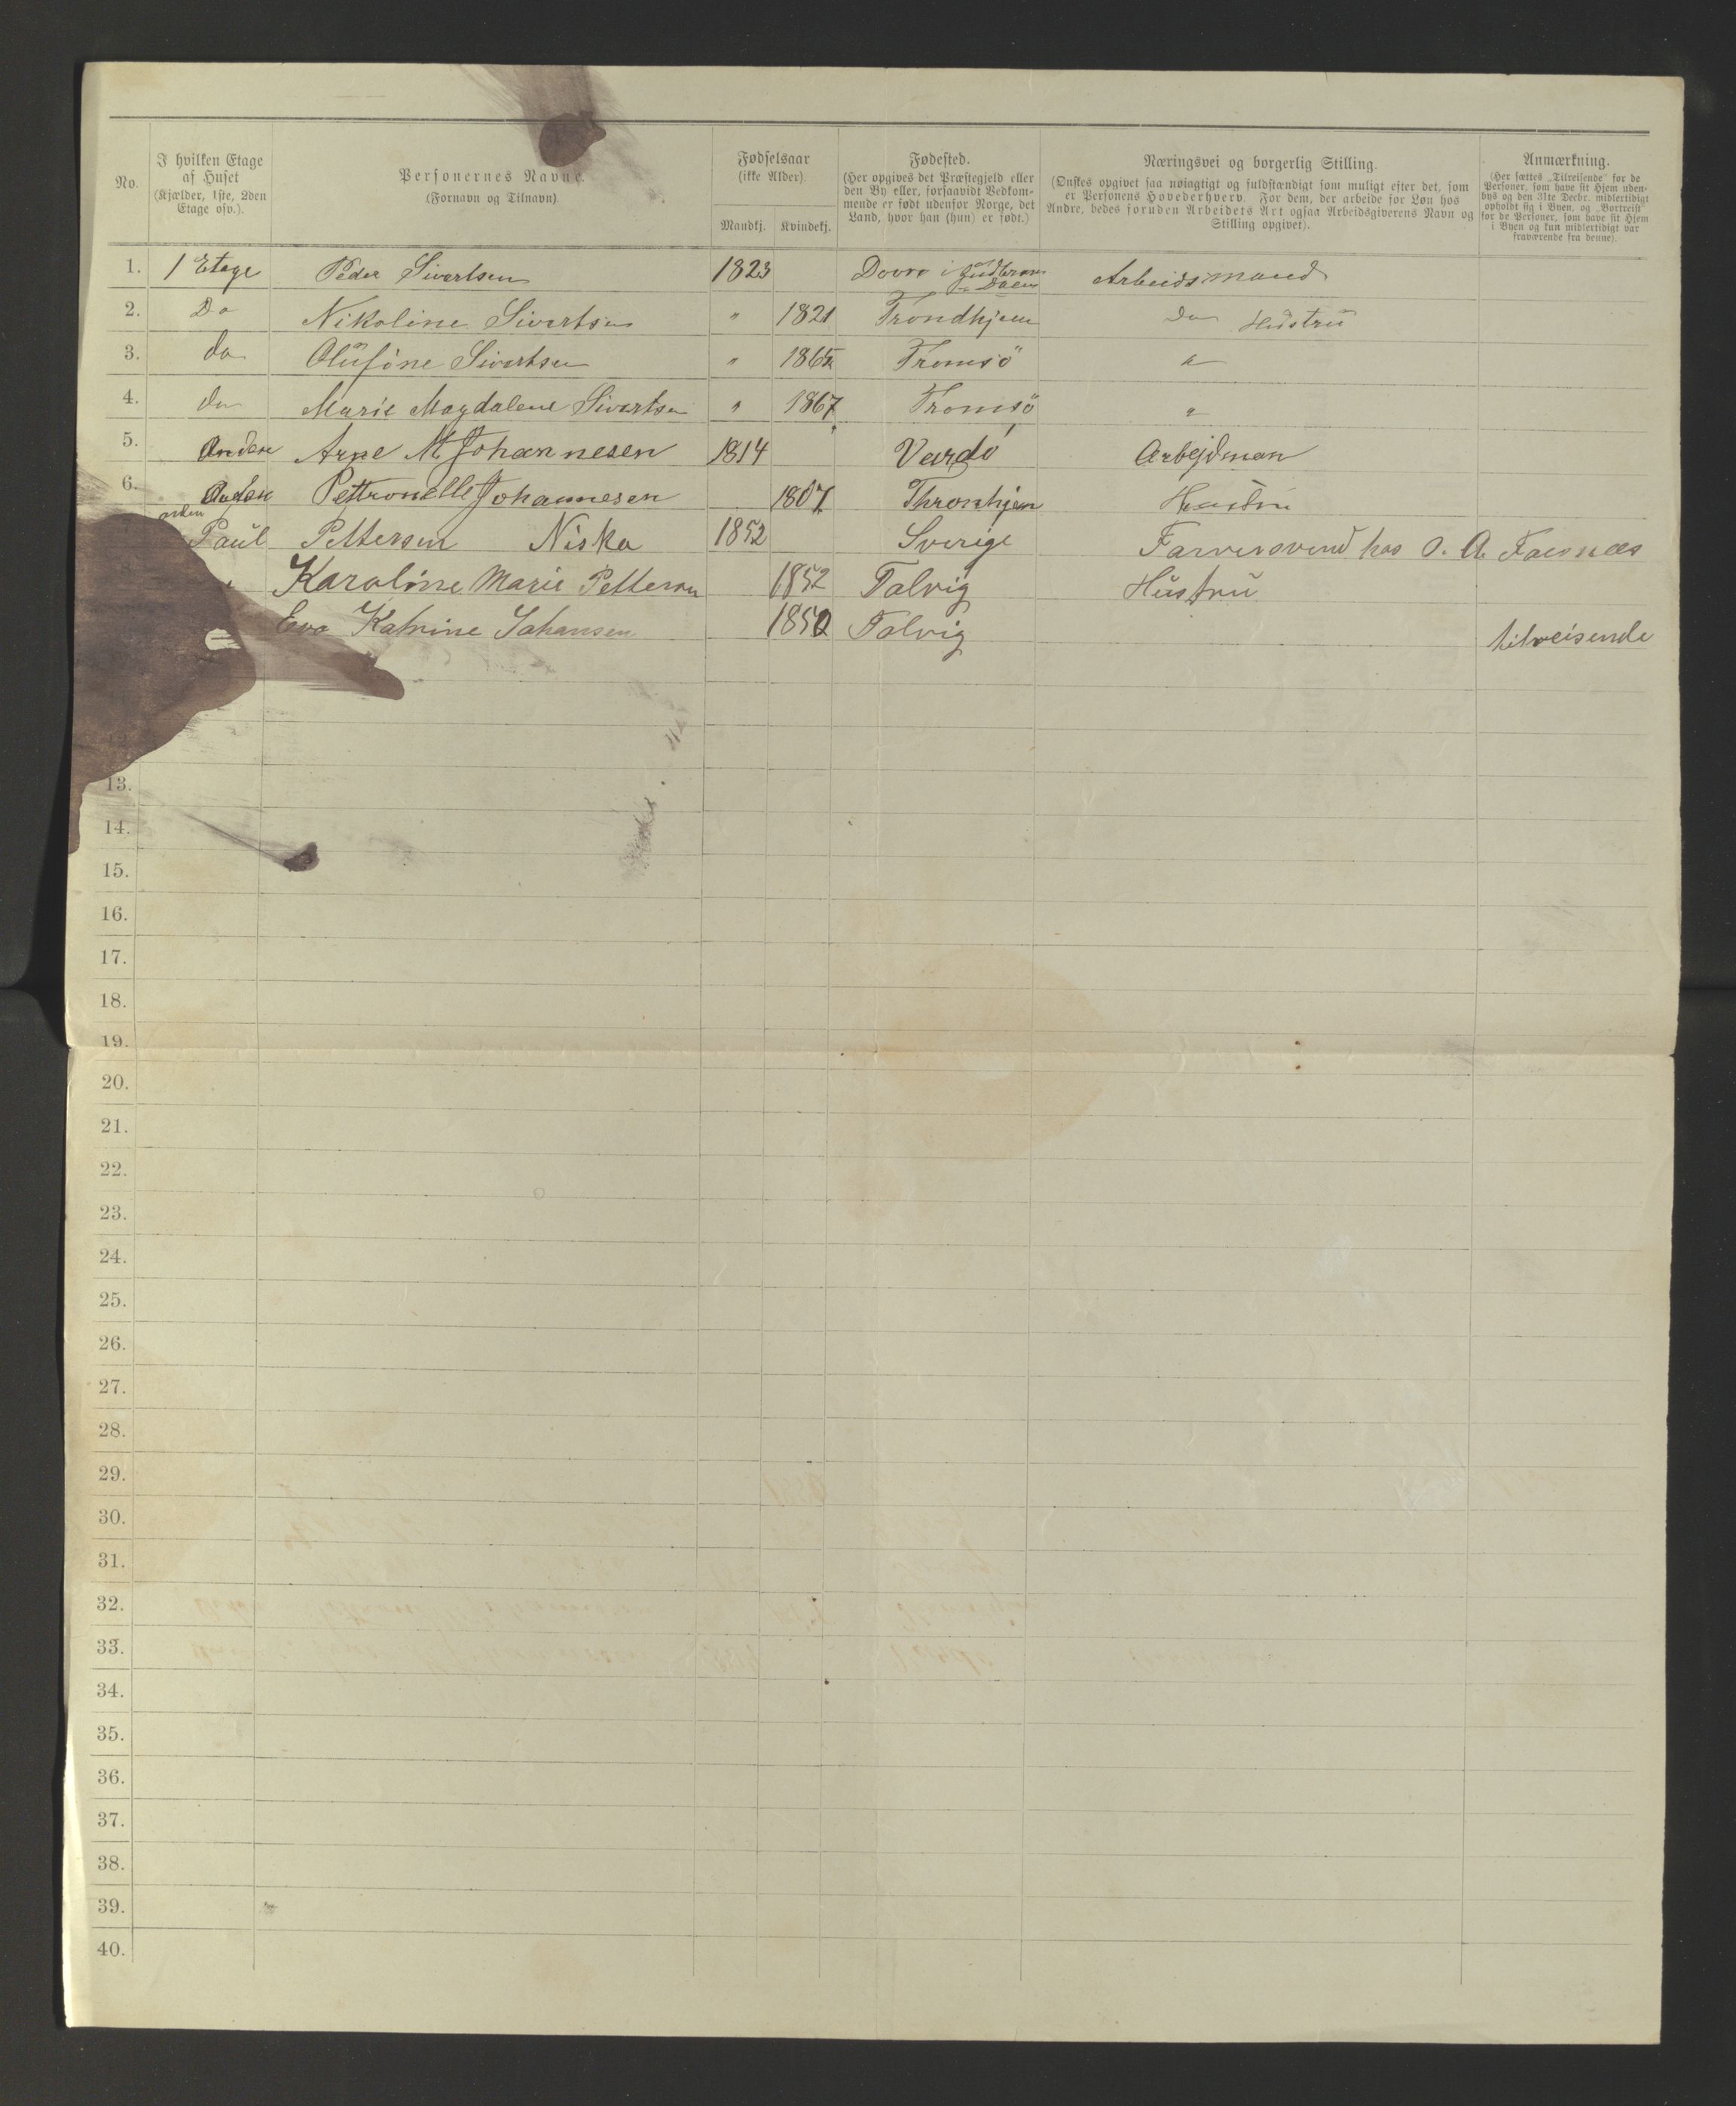 No.
I hvilken Etage
af Huset
(Kjælder, 1ste, 2den
Etage osv.).
Personernes Navne.
(Fornavn og Tilnavn)
Fødselsaar
(ikke Alder)
Mandkj. Kvindekj.
Fødested.
(Her opgives det Præstegjeld eller
den By eller, forsaavidt Vedkom-
mende er født udenfor Norge, det
Land, hvor han (hun) er født.)
Næringsvei og borgerlig Stilling.
(Ønskes opgivet saa nøiagtigt og fuldstændigt som muligt efter det, som
er Personens Hovederhverv. For dem, der arbeide for Løn hos
Andre, bedes foruden Arbeidets Art ogsaa Arbeidsgiverens Navn og
Stilling opgivet).
Anmærkning.
(Her sættes „Tilreisende" for de
Personer, som have sit Hjem uden-
bys og den 31te Decbr. midlertidigt
opholdt sig i Byen, og „Bortreist"
for de Personer, som have sit Hjem
i Byen og kun midlertidigt var
fraværende fra denne).
1. 1 Etage Peder Sivertsen 1823 Dovre i Gudbrans Dalen Arbeidsmand
2. Do Nikoline Sivertsen " 1821 Trondhjem Do Hustru
3. do Olufine Sivertsen " 1865 Tromsö "
4. do Marie Magdalene Sivertsen " 1867 Tromsö "
5. Anden Arne M Johannesen 1814 Vardö Arbejdman
6. Anden Pettronelle Johannesen 1807 Thronhjem Hustru
anden
Paul Pettersen Niska 1852 Sverige Farversvend hos O. A. Faesnæs
Karoline Marie Pettersen 1852 Talvig Hustru
Eva Katrine Johansen 1850 Talvig tilreisende
13.
14.
15.
16.
17.
18.
19.
20.
21.
22.
23.
24.
25.
26.
27.
28.
29.
30.
31.
32.
33.
34.
35.
36.
37.
38.
39.
40.